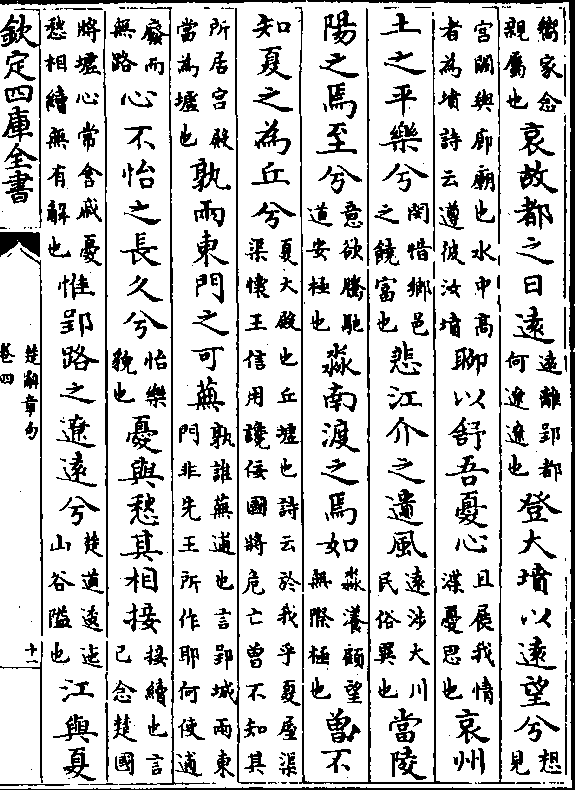 嚮家念親屬也哀故都之日遠遠離郢都何遼遼也登大墳以遠望兮想見
宮闕與廊廟也水中高者為墳詩云遵彼汝墳聊以舒吾憂心且展我情渫憂思也哀州
土之平樂兮閔惜鄉邑之饒富也悲江介之遺風遠涉大川民俗異也當陵
陽之焉至兮意欲騰馳道安極也淼南渡之焉如淼瀁顧望無際極也曾不
知夏之為丘兮夏大殿也丘墟也詩云於我乎夏屋渠渠懷王信用讒佞國將危亡曾不知其
所居宮殿當為墟也孰兩東門之可蕪孰誰蕪逋也言郢城兩東門非先王所作耶何使逋
廢而無路心不怡之長久兮怡樂貌也憂與愁其相接接續也言己念楚國
將墟心常含戚憂愁相續無有解也惟郢路之遼遠兮楚道逶迤山谷隘也江與夏
欽定四庫全書
楚辭章句
卷四
十一